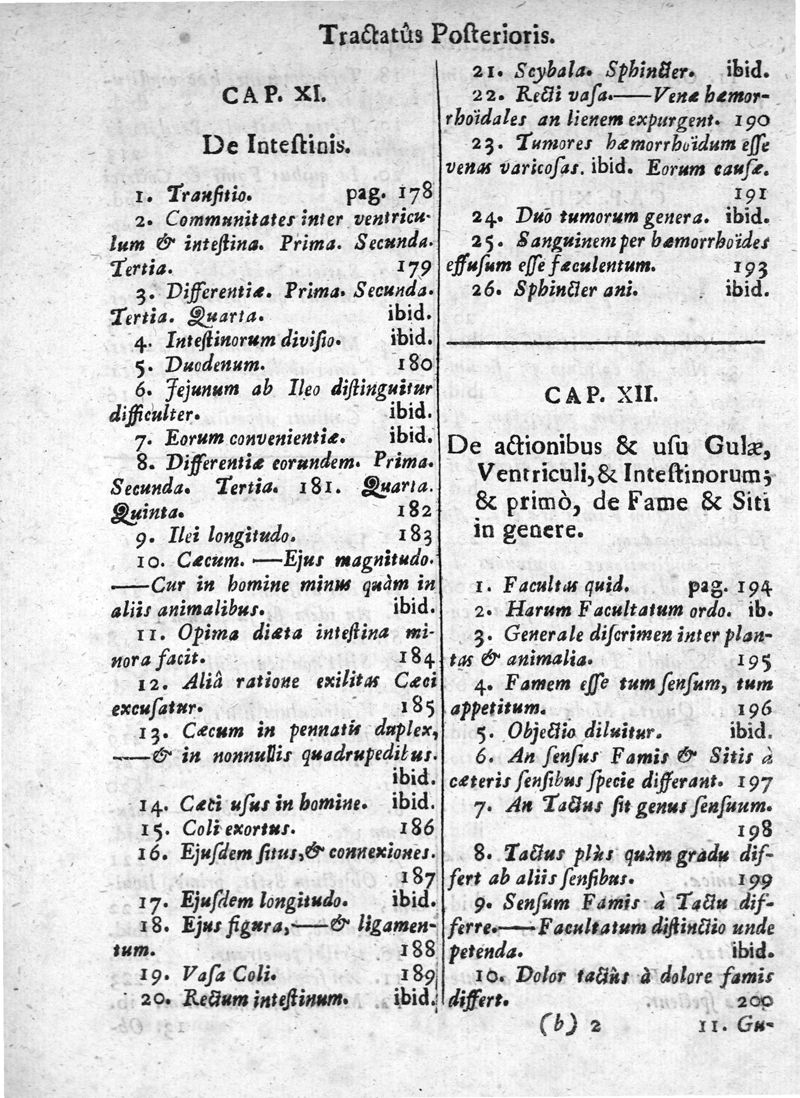 Tractatûs Posterioris.
CAP. XI.
De Inteſtinis.
1. Tranſitio. pag. 178
2. Communitates inter ventricu-
lum & inteſtina. Prima. Secunda.
Tertia. 179
3. Differentiæ. Prima. Secunda.
Tertia. Quarta. ibid.
4. Inteſtinorum diviſio. ibid.
5. Duodenum. 180
6. Jejunum ab Ileo diſtinguitur
difficulter. ibid.
7. Eorum convenientiæ. ibid.
8. Differentiæ eorundem. Prima.
Secunda. Tertia. 181. Quarta.
Quinta. 182
9. Ilei longitudo. 183
10. Cæcum. —Ejus magnitudo.
—Cur in homine minus quàm in
aliis animalibus. ibid.
11. Opima diæta inteſtina mi-
nora facit. 184
12. Aliâ ratione exilitas Cæci
excuſatur. 185
13. Cæcum in pennatis duplex,
—& in nonnullis quadrupedibus.
ibid.
14. Cæci uſus in homine. ibid.
15. Coli exortus. 186
16. Ejuſdem ſitus, & connexiones.
187
17. Ejuſdem longitudo. ibid.
18. Ejus figura,—& ligamen-
tum. 188
19. Vaſa Coli. 189
20. Rectum inteſtinum. ibid.
21. Scybala. Sphincter. ibid.
22. Recti vaſa.—Venæ hæmor-
rhoïdales an lienem expurgent. 190
23. Tumores hæmorrhoïdum eſſe
venas varicoſas. ibid. Eorum cauſæ.
191
24. Duo tumorum genera. ibid.
25. Sanguinem per hæmorrhoïdes
effuſum eſſe fæculentum. 193
26. Sphincter ani. ibid.
CAP. XII.
De actionibus & uſu Gulæ,
Ventriculi, & Inteſtinorum;
& primò, de Fame & Siti
in genere.
1. Facultas quid. pag. 194
2. Harum Facultatum ordo. ib.
3. Generale diſcrimen inter plan-
tas & animalia. 195
4. Famem eſſe tum ſenſum, tum
appetitum. 196
5. Objectio diluitur. ibid.
6. An ſenſus Famis & Sitis à
cæteris ſenſibus ſpecie differant. 197
7. An Tactus ſit genus ſenſuum.
198
8. Tactus plùs quàm gradu dif-
fert ab aliis ſenſibus. 199
9. Senſum Famis à Tactu dif-
ferre.—Facultatum diſtinctio unde
petenda. ibid.
10. Dolor tactûs à dolore famis
differt. 200
(b) 2 11. Gu-